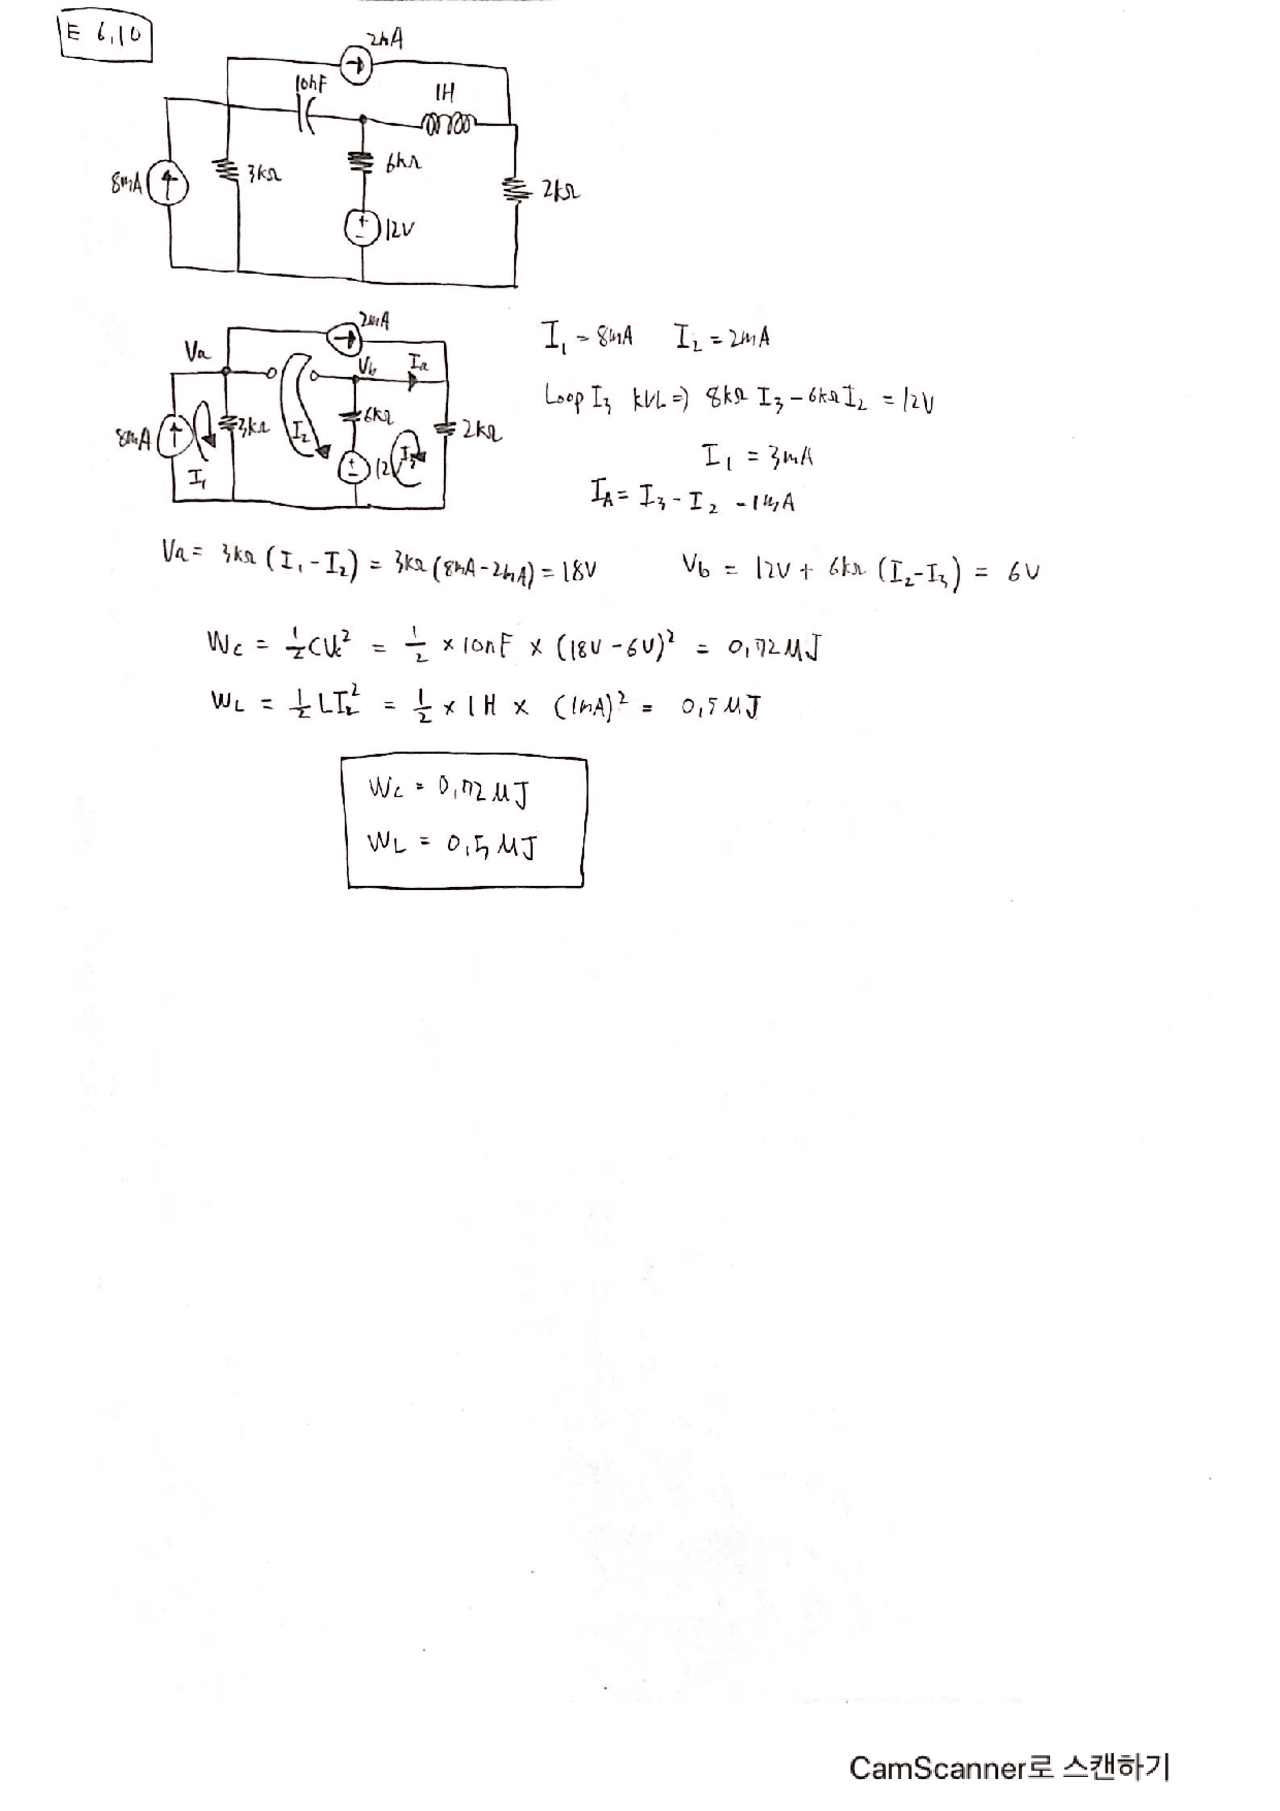 E 6,10
2mA
10nF
1H
8mA
3kΩ
6kΩ
2kΩ
12V
2mA
Va
Vb
Ia
8mA
3kΩ
6kΩ
2kΩ
I₁
I₂
12
I₃
I₁ = 8mA I₂ = 2mA
Loop I₃ KVL => 8kΩ I₃ - 6kΩ I₂ = 12V
I₁ = 3mA
I_A = I₃ - I₂ - 1mA
Va = 3kΩ (I₁ - I₂) = 3kΩ (8mA - 2mA) = 18V
Vb = 12V + 6kΩ (I₂ - I₃) = 6V
Wc = 1/2 CVc² = 1/2 × 10nF × (18V - 6V)² = 0,72 MJ
WL = 1/2 L I_L² = 1/2 × 1H × (1mA)² = 0,5 MJ
Wc = 0,72 MJ
WL = 0,5 MJ
CamScanner로 스캔하기